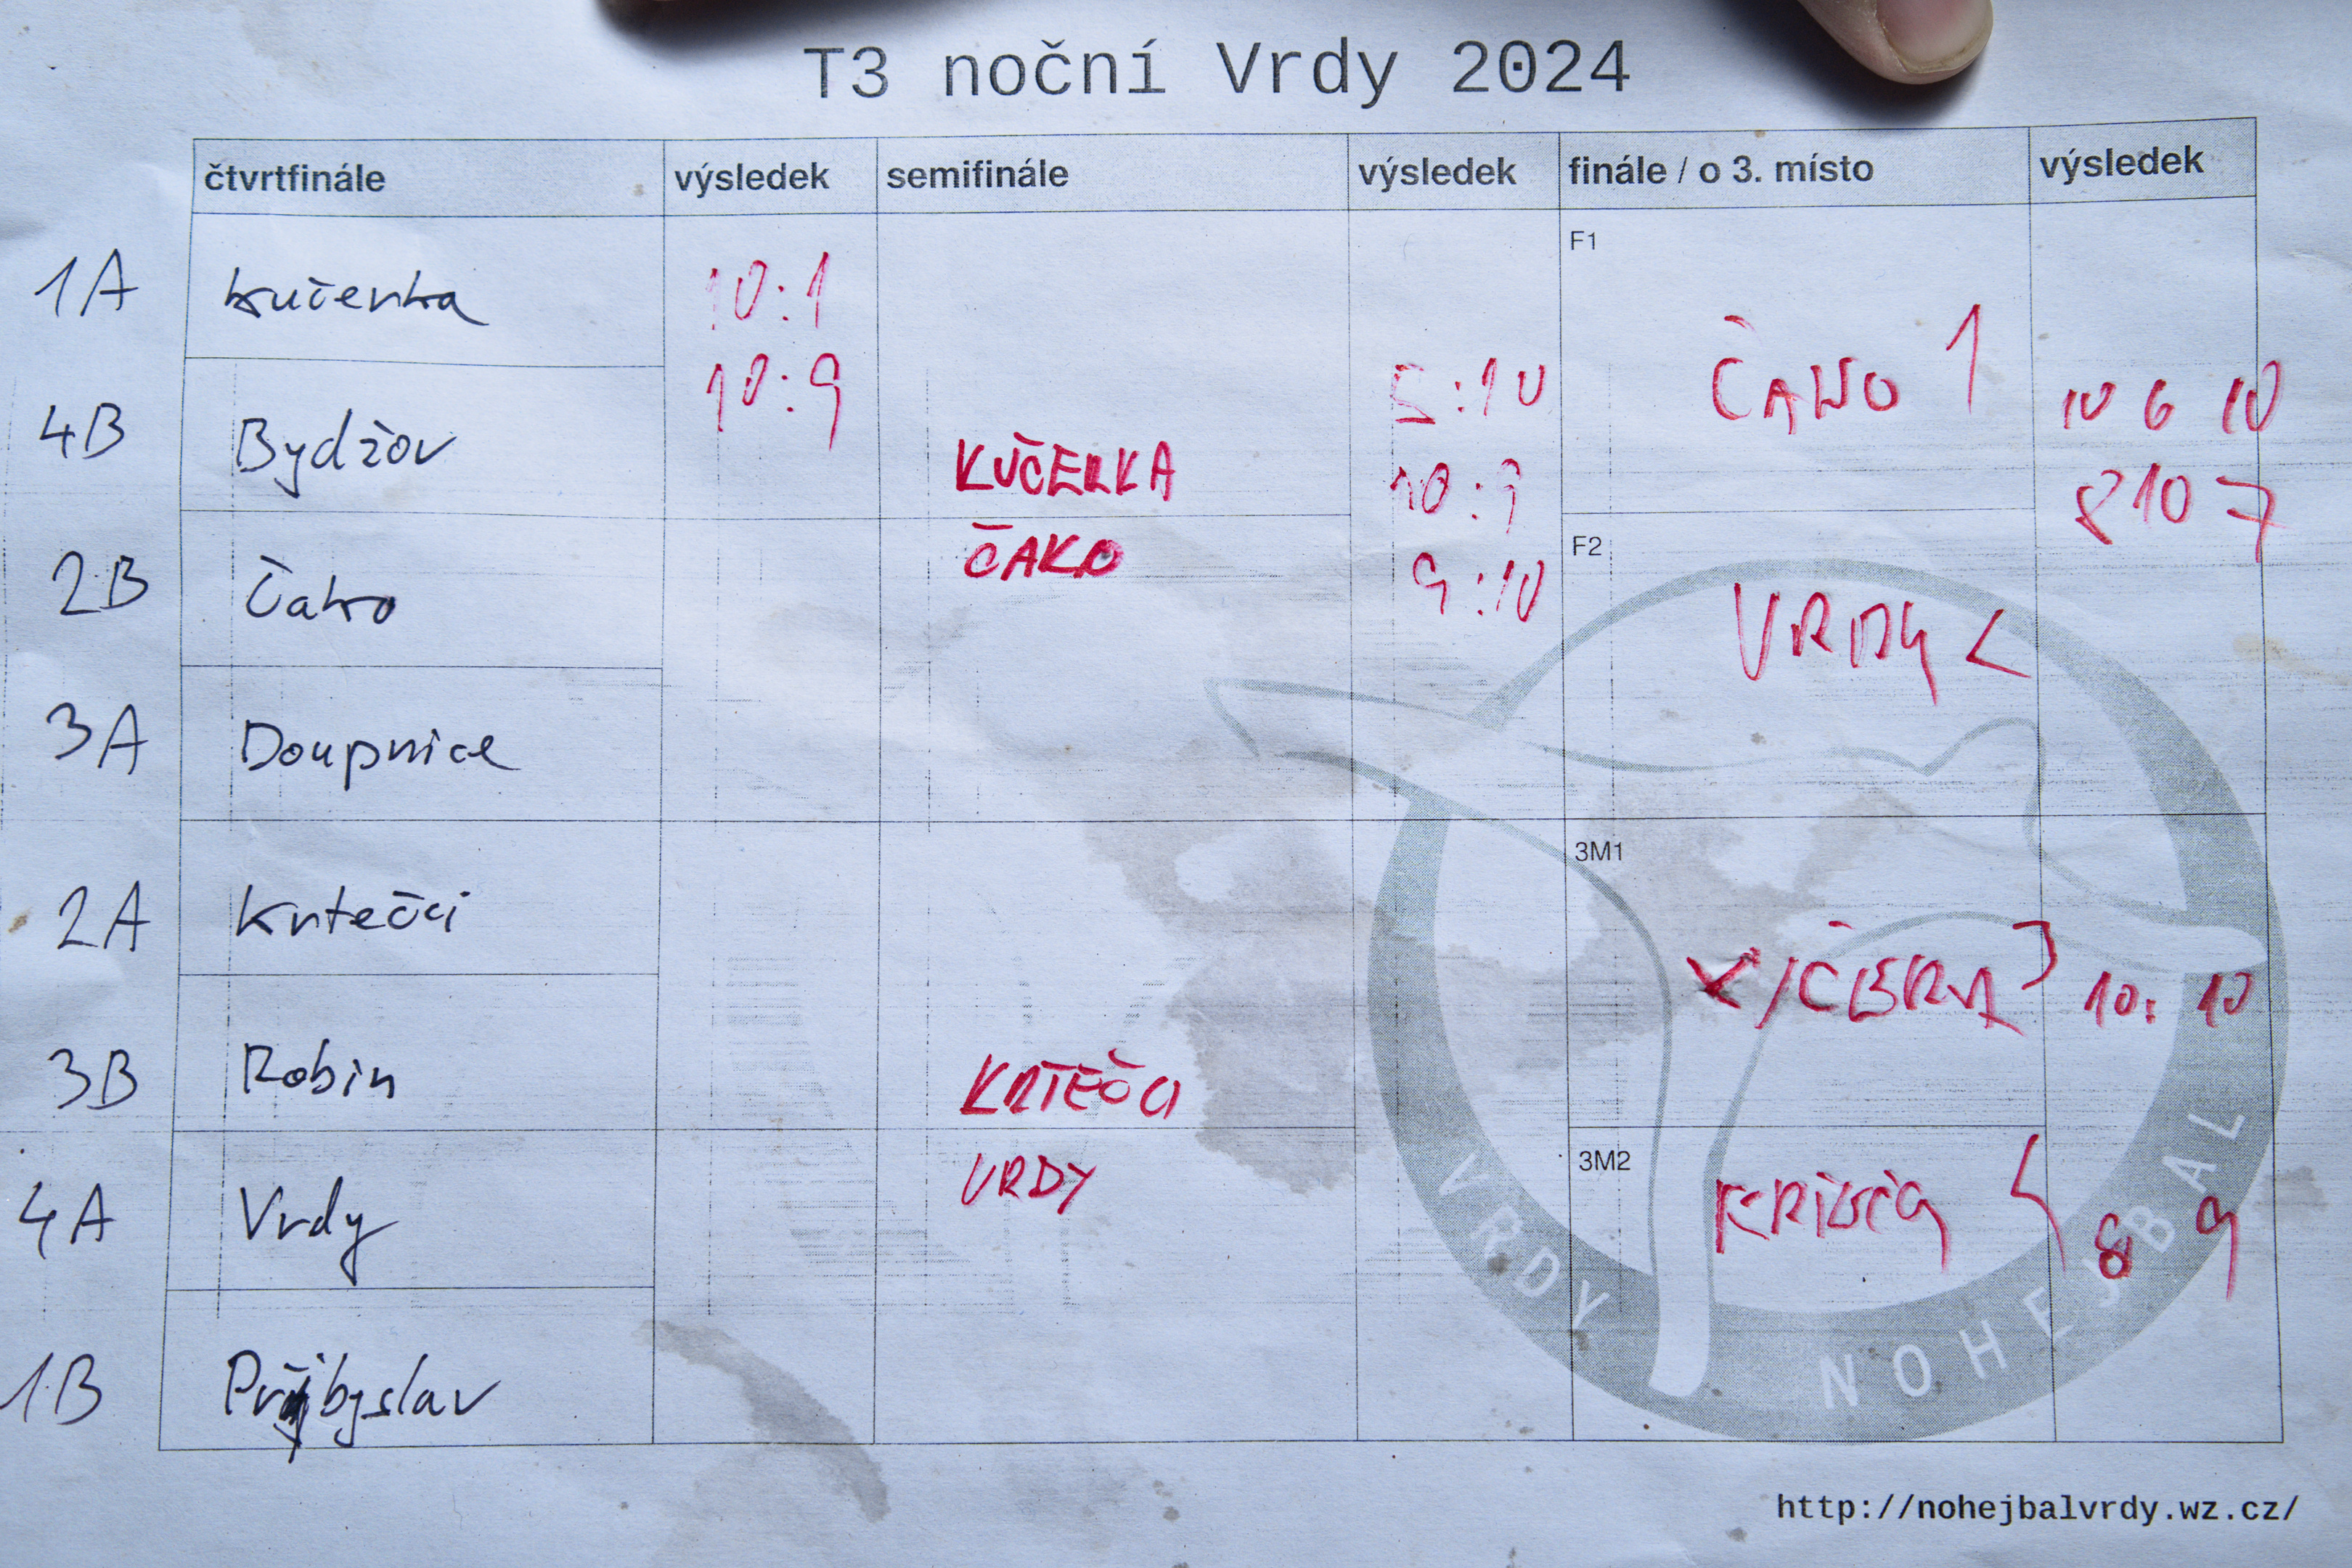 T3 noční Vrdy 2024
čtvrtfinále výsledek semifinále výsledek finále / o 3. místo výsledek
1A Kučerka 10:1
10:9
4B Bydžov
KUČERKA
5:10
10:9
9:10
F1
ČAKO 1
10 6 10
8 10 7
2B Čako
ČAKO
3A Doupnice
F2
VRDY 2
2A Krtečci
3B Robin
KRTEČCI
3M1
3
10: 10
4A Vrdy
VRDY
1B Přibyslav
3M2
4
8 9
VRDY NOHEJBAL
http://nohejbalvrdy.wz.cz/